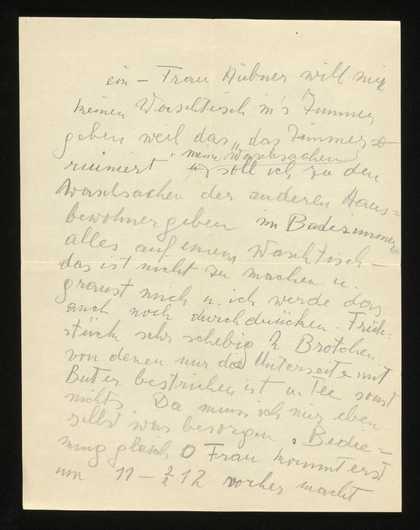 ein - Frau Hübner will mir
keinen Waschtisch in's Zimmer
geben weil das „das Zimmer
ruiniert" meine Waschsachen soll ich zu den
Waschsachen der anderen Haus=
bewohner geben im Badezimmer
alles auf einem Waschtisch
das ist nicht zu machen u.
graust mich u. ich werde das
auch noch durchdrücken. Früh-
stück sehr schebig 2 Brötchen
von denen nur die Unterseite mit
Butter bestrichen ist u. Tee sonst
nichts. Da muss ich mir eben
selbst was besorgen. Bedie=
nung gleich 0 Frau kommt erst
um 11 - ½ 12 vorher macht